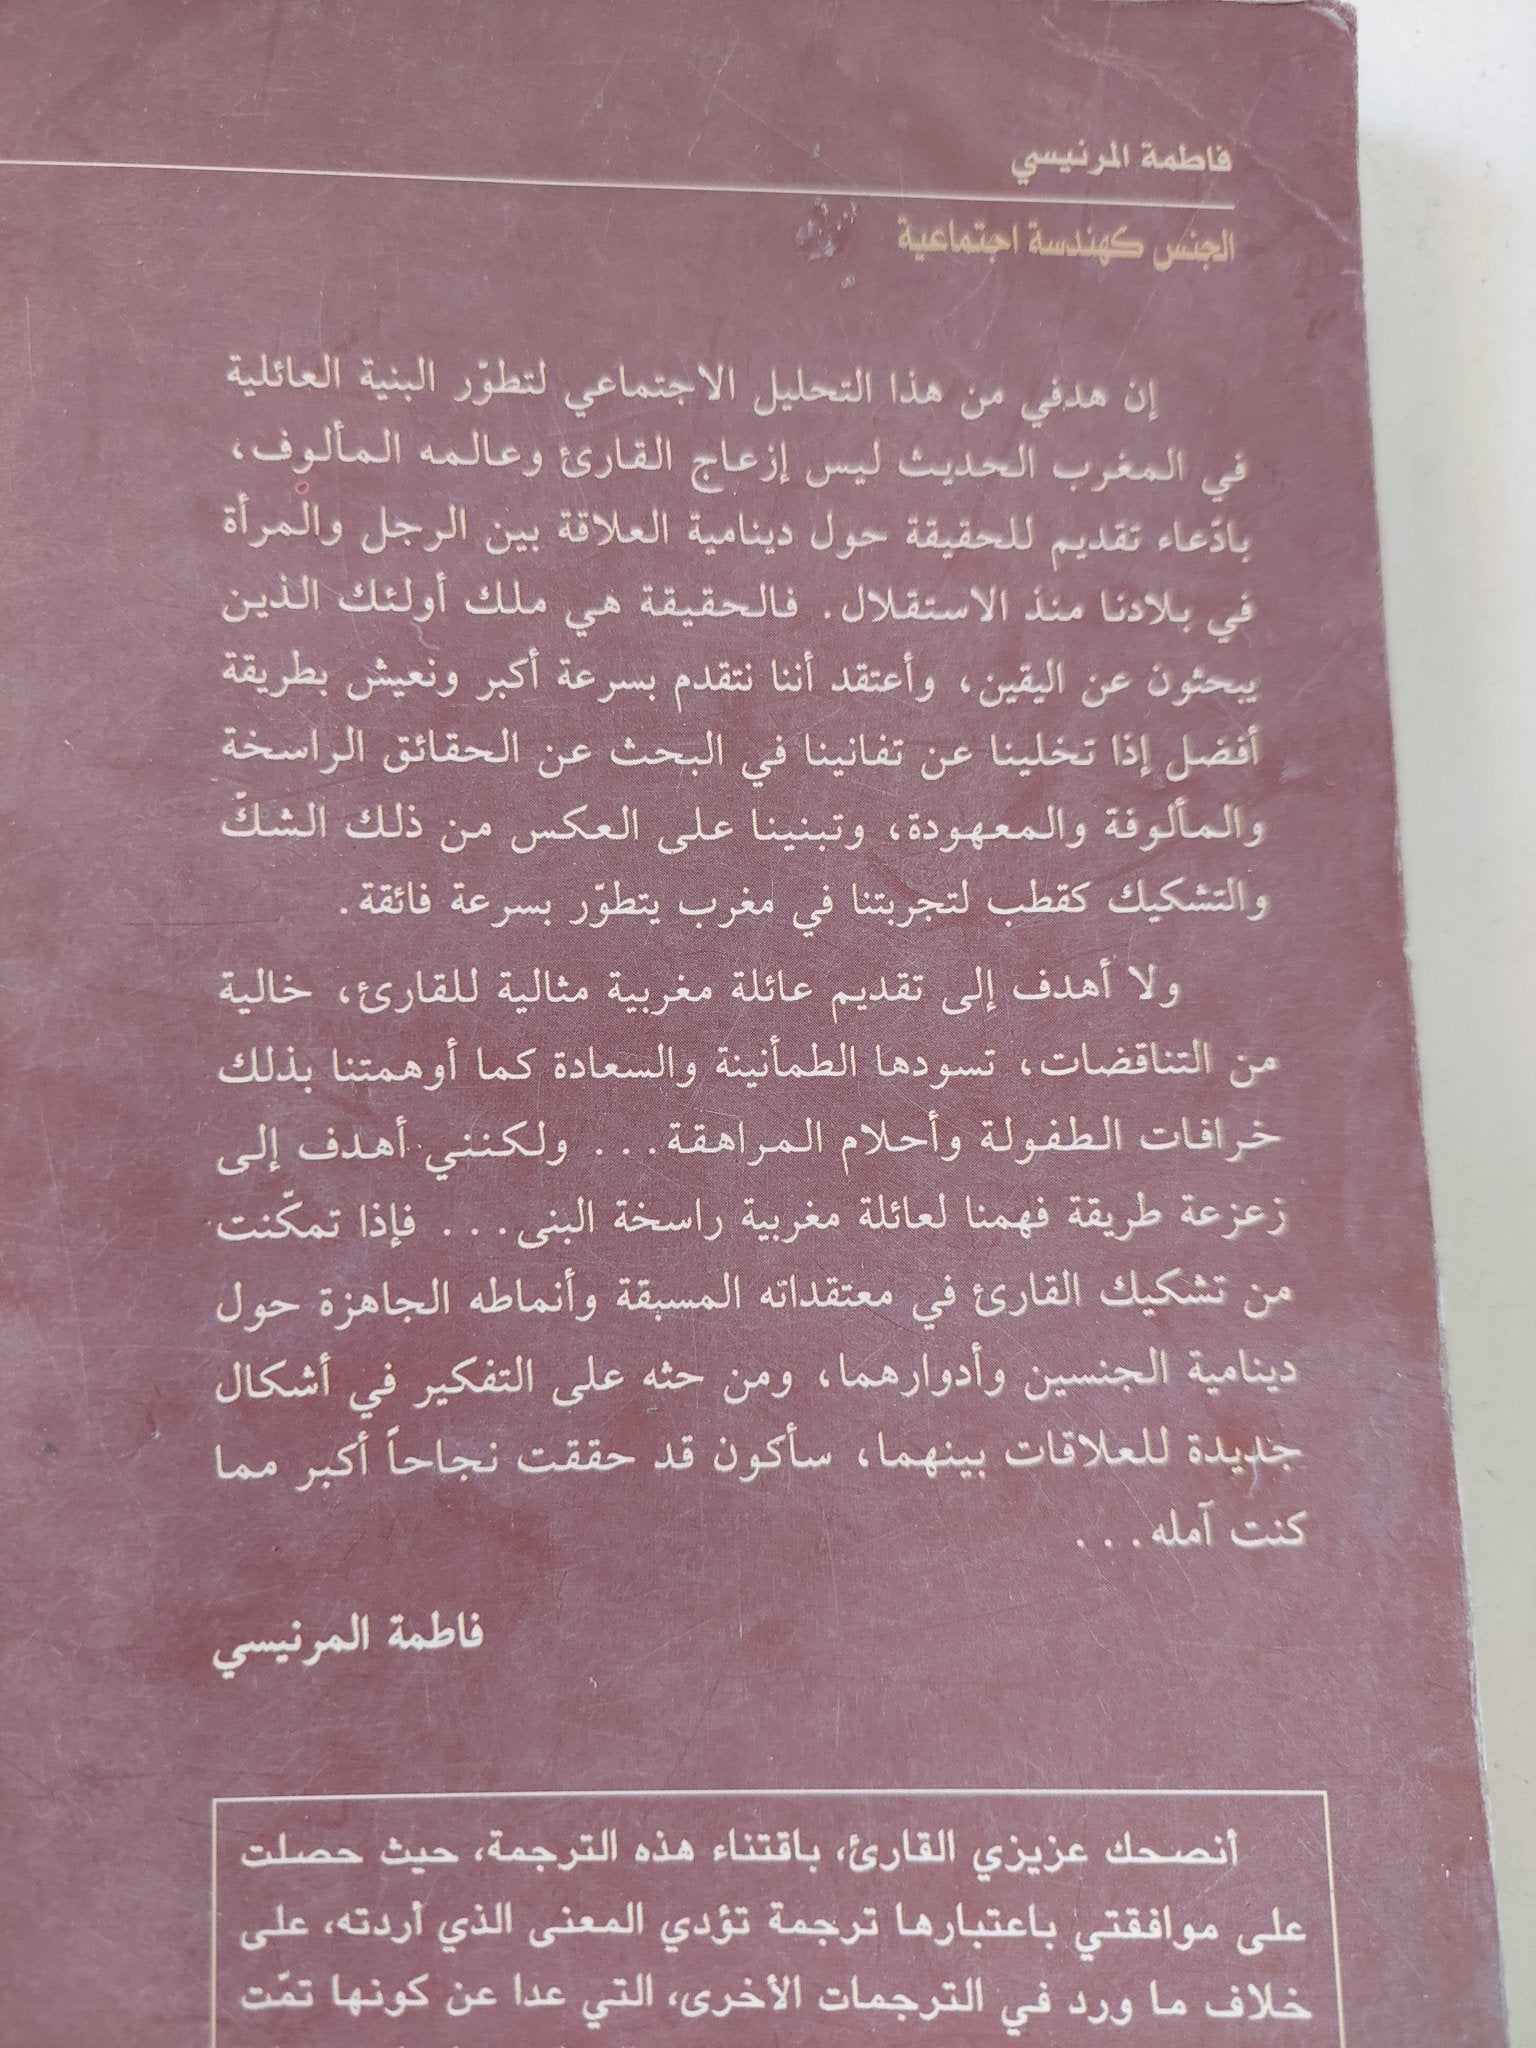 فاطمة المرنيسي
الجنس كهندسة اجتماعية
إن هدفي من هذا التحليل الاجتماعي لتطوّر البنية العائلية
في المغرب الحديث ليس إزعاج القارئ وعالمه المألوف،
بادّعاء تقديم للحقيقة حول دينامية العلاقة بين الرجل والمرأة
في بلادنا منذ الاستقلال. فالحقيقة هي ملك أولئك الذين
يبحثون عن اليقين، وأعتقد أننا نتقدم بسرعة أكبر ونعيش بطريقة
أفضل إذا تخلينا عن تفانينا في البحث عن الحقائق الراسخة
والمألوفة والمعهودة، وتبنينا على العكس من ذلك الشكّ
والتشكيك كقطب لتجربتنا في مغرب يتطوّر بسرعة فائقة.
ولا أهدف إلى تقديم عائلة مغربية مثالية للقارئ، خالية
من التناقضات، تسودها الطمأنينة والسعادة كما أوهمتنا بذلك
خرافات الطفولة وأحلام المراهقة... ولكنني أهدف إلى
زعزعة طريقة فهمنا لعائلة مغربية راسخة البنى... فإذا تمكّنت
من تشكيك القارئ في معتقداته المسبقة وأنماطه الجاهزة حول
دينامية الجنسين وأدوارهما، ومن حثه على التفكير في أشكال
جديدة للعلاقات بينهما، سأكون قد حققت نجاحاً أكبر مما
كنت آمله...
فاطمة المرنيسي
أنصحك عزيزي القارئ، باقتناء هذه الترجمة، حيث حصلت
على موافقتي باعتبارها ترجمة تؤدي المعنى الذي أردته، على
خلاف ما ورد في الترجمات الأخرى، التي عدا عن كونها تمّت